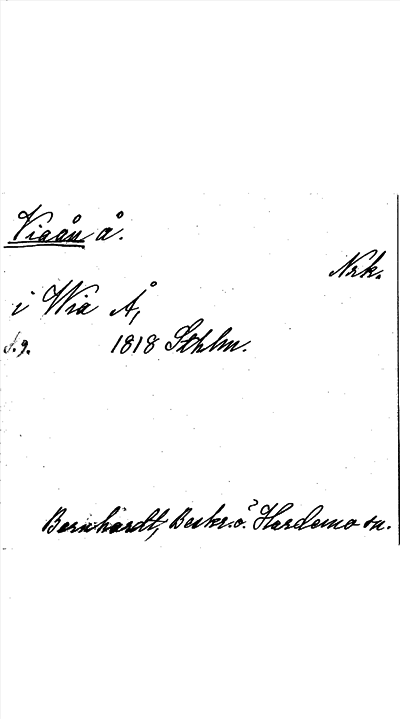 Viaån å.
Nrk.
i Wia Å,
d.g. 1818 Sthlm.
Bernhardt, Beskr. ö. Hardemo sn.